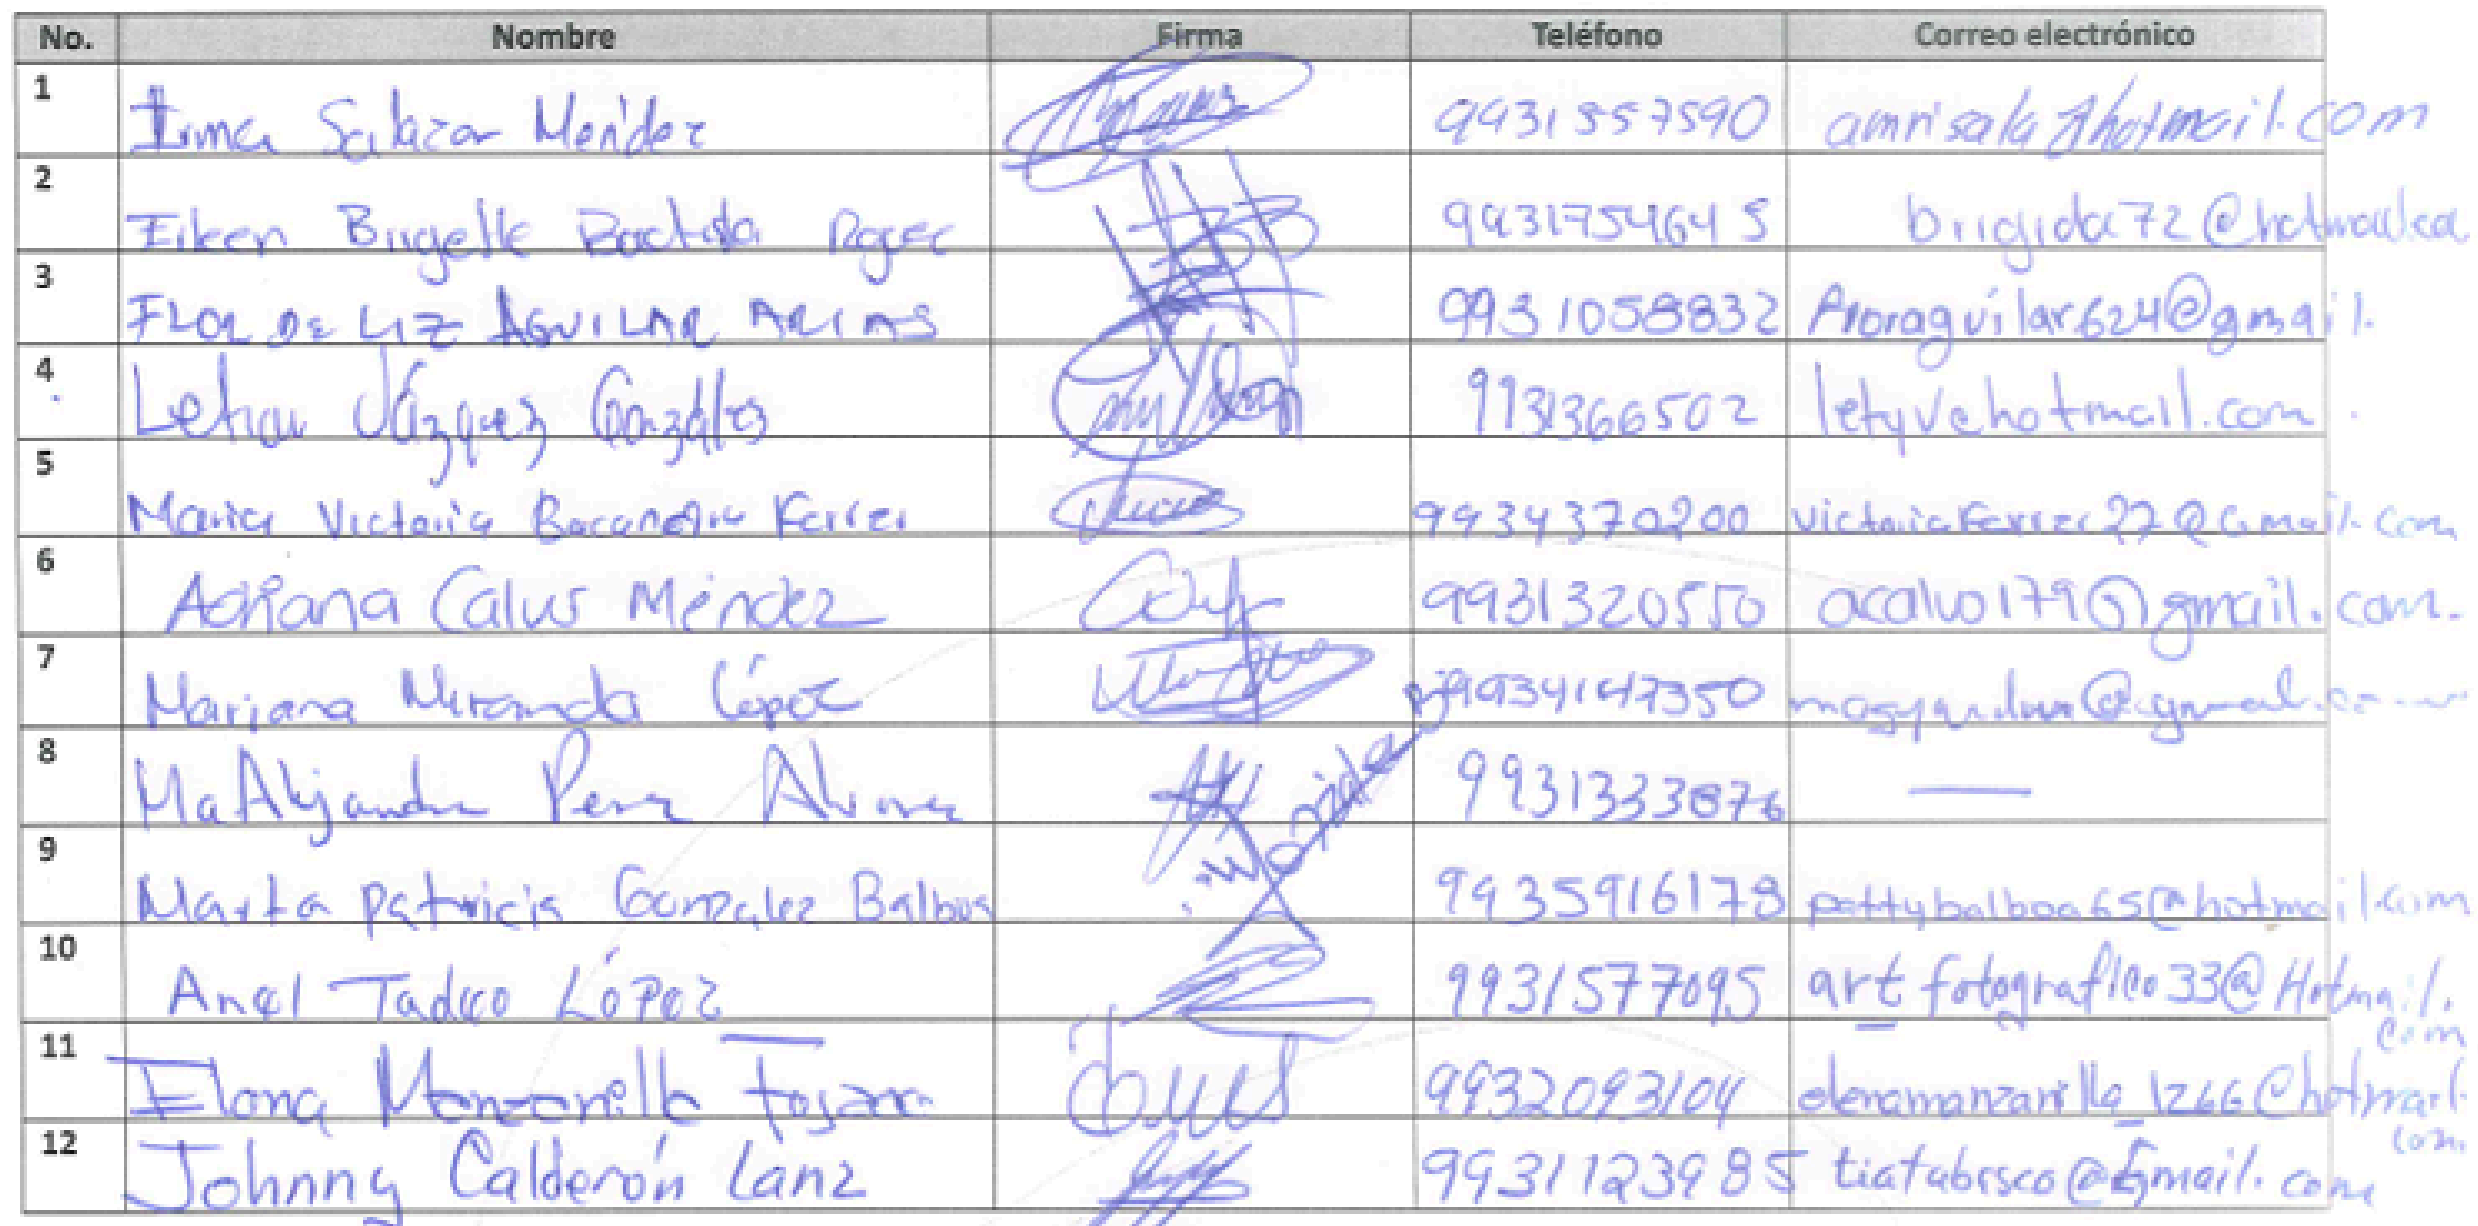 No. Nombre Firma Teléfono Correo electrónico
1 Irma Salazar Méndez 9931557590 amrisala@hotmail.com
2 Eileen Brigelle Bastida 9931754645 brigida72@hotmail.co
3 FLOR DE LIZ AGUILAR ARIAS 9931058832 floraguilar624@gmail.
4 Leticia Vázquez González 9931366502 letyv@hotmail.com
5 Maria Victoria Bocanegra Ferrer 9934370200 victoriaferrer27@Gmail.com
6 Adriana Calvo Méndez 9931320550 acalvo179@gmail.com.
7 Mariana Miranda López 9934147350
8 Ma Alejandra Perez 9931333876 —
9 Marta Patricia Gonzalez Balboa 9935916178 pattybalboa65@hotmail.com
10 Anel Tadeo López 9931577095 art_fotografico33@Hotmail.
com
11 Elena Manzanilla 9932093104 elenamanzanilla_1266@hotmail.
com.
12 Johnny Calderón Lanz 9931123985 tiatabasco@gmail.com